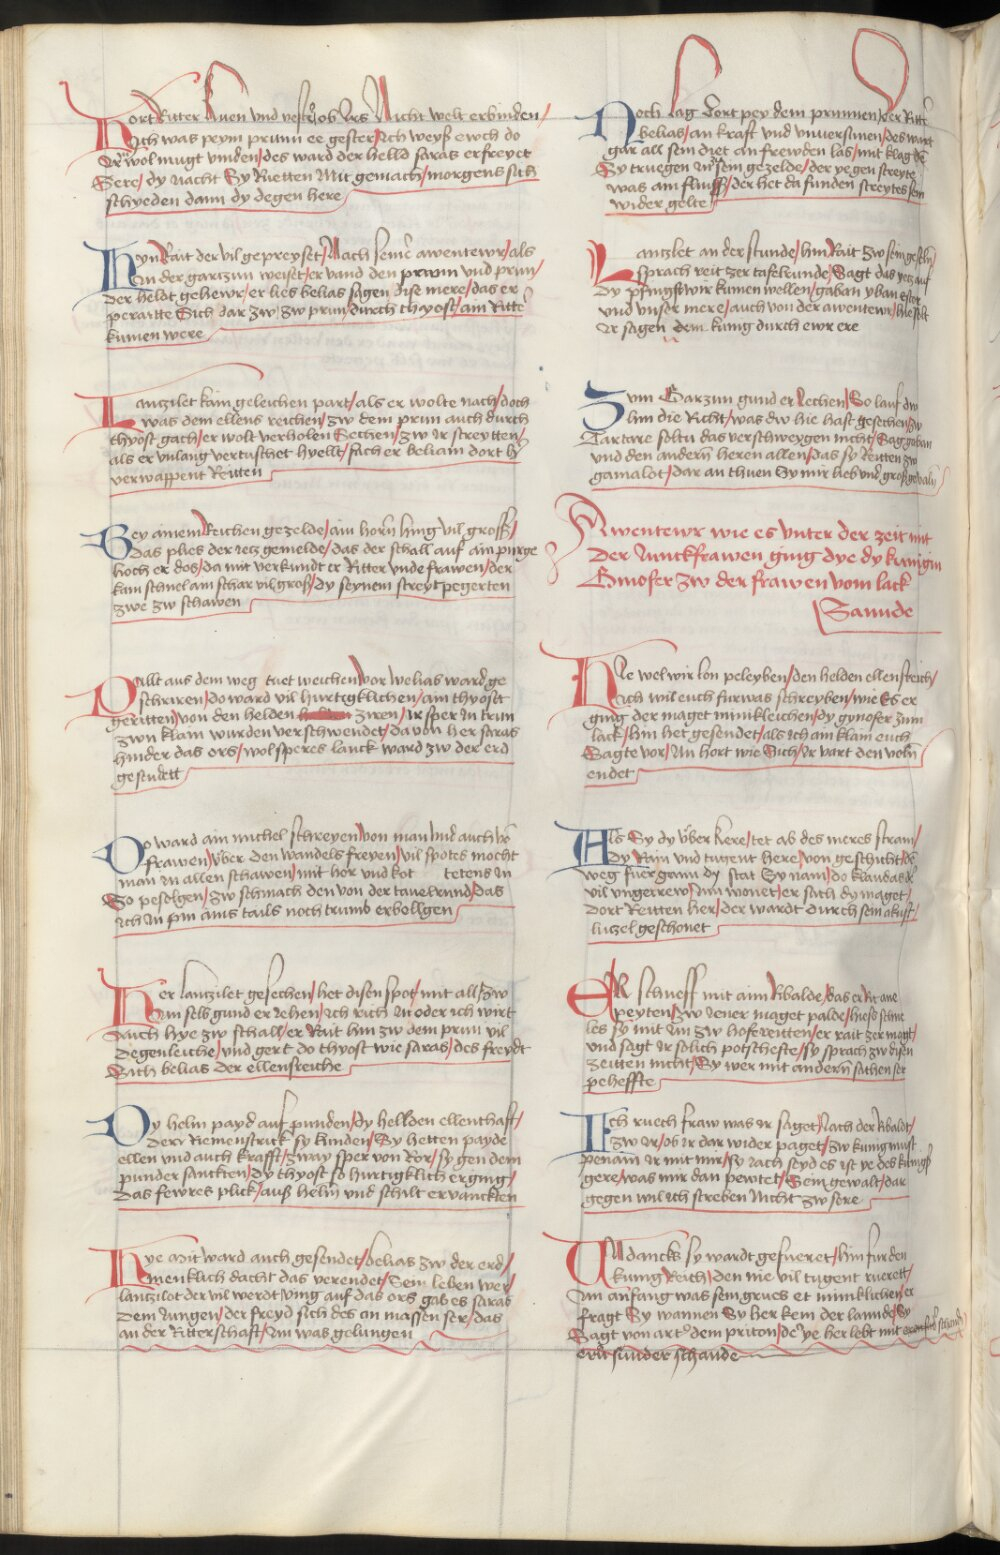 Dort Ritter kuen vnd vest ob Irs Nicht welt erbinden/
Ich was peym prunn ee gester/Ich weyß ewch do
Er wol mugt vinden/des ward der helld saras erfreyet
Sere/dy nacht Sy Rietten Mit gemach/morgens sich
schyeden dann dy degen here
Hyn Rait der vil gepreyset/Nach seiner awentewr/als
In der gartzun weiset/er vand den prwnn vnd prun/
der heldt gehewr/er lies belias sagen dise mere/das er
peraitte Sich dar zw/zw prun/durch thyost/ain Ritter
kumen were
Lantzilet kam geleichen part/als er wolte nach/doch
was dem ellens reichen/zw dem prun auch durch
thyost gach/er wolt verholen Sechen/zw Ir streytten/
als er vnlang vertuschet hyellt/sach er beliam dort her
verwappent Reitten
Bey ainem Reichen gezelde/ain horn hing vil groß/
das plies der
hoch er dos/da mit verkundt er Ritter vnde frawen/der
kam schnel ain schar vil gros/dy seynem streyt pegerten
zwe zw schawen
Pallt aus dem weg tuet weichen/vor welias ward ge
schriren/do ward vil hurtigklichen/ain thyost
geritten/von den helden ziren/Ir sper In trun
zwn klain wurden verschwendet/da von her saras
hinder das ors/wol speres lanck ward zw der erd
gesendett
Do ward ain michel schreyen/von man vnd auch von
frawen/vber den wandels freyen/vil spotes mocht
man In allen schawen/mit hor vnd kot tetens In
So pesolgen/zw schmach den von der tauelrund/das
Ich In pin ains tails noch trumb erbollgen
Her lantzilet gesechen/het disen spot/mit all/zw
Im selb gund er Iehen/Ich rich In oder ich wirt
auch hye zw schall/er Rait hin zw dem prun vil
degenleiche/vnd gert do thyost wie saras/des freydt
Sich belias der ellensreiche
Dy helm payd auf punden/dy hellden ellenthaft/
derr Riemenstrick sy kunden/Sy hetten payde
ellen vnd auch krafft/zway sper von Ror/sy gen dem
punder sanckten/dy thyost so hurtigklich erging/
das fewres plick/auß helm vnd schilt erwanckten
Hye mit ward auch gesendet/belias zw der erd/
menklich dacht das verendet/Sein leben wer/
lantzilot der vil werdt ving auf das ors gab es saras
dem Iungen/der freyd sich des an massen ser/das
an der Ritterschaft/Im was gelungen
Noch lag dort pey dem prunnen/der Ritter
belias/an kraft vnd vnuersunen/des ward
gar all sein diet an frewden las/mit klag der
Sy truegen In sein gezelde/der yegen streyte
was am fluß/der het da funden streytes sein
wider gelte
Lantzlet an der stunde/hin Rait zw sein gesellen/
sprach reit zer tafelrunde/Sagt das yetz auf
dy pfingst wir kumen wellen/gaban yban ester
vnd vnser mere/auch von der awentewr/hie solt
Ir sagen dem kunig durch ewr ere
Zum Garzun gund er Iechen/So lauf dw
hin die Richt/was dw hie hast gesechen/zw
Tartare soltu das verschweygen nicht/Sag gaban
vnd den andern heren allen/das sy Reitten zw
gamalot/dar an thuen Sy mir lieb vnd groß gevallen
Awentewr wie es vnter der zeit mit
der Iunckfrawen ging dye dy kunigin
Ginofer zw der frawen vom lack
Sannde
Hie wel wir lon peleyben/den helden ellensreich/
Ich wil euch furwas schreyben/wie es er
ging der maget minikleichen/dy gynofer zum
lack/hin het gesendet/als Ich ain klain euch
Sagte vor/Nu hort wie Sich/Ir vart den voln
endet
Als Sy dy vber kere/tet ab des meres stram/
dy Rain vnd tugent here/von geschicht des
weg fuer gwun dy stat Sy nam/do klaudas der
vil vngetrew/Inn wonet/er sach dy maget/
dort Reitten her/der wardt durch sein akust/
lutzel geschonet
Er schueff mit aim Ribalde/das er Rit ane
peyten/zw Iener maget palde/hies schne
les sy mit Im zw hofe reitten/er rait zer magt/
vnd sagt Ir solich potschefte/sy sprach zw disen
zeitten nicht/Sy wer mit andern sachen ser
pehefftte
Ich ruech fraw was Ir saget/Sprach der Ribaldt/
zw Ir/ob Ir dar wider paget/zw kunig muest
penam Ir mit mir/sy iach seyd es ist ye des kunigs
gere/was mir dan pewtet/Sein gewalt/dar
gegen wil ich streben Nicht zw sere
An danck sy wardt gefueret/hin fur den
kunig Reich/den nie vil tugent ruerett/
Im anfang was sein grues et minklichen/er
fragt Sy wannen Sy her kem der lannde/Sy
Sagt von artus dem priton/der ye her lebt mit
eren sunder schande